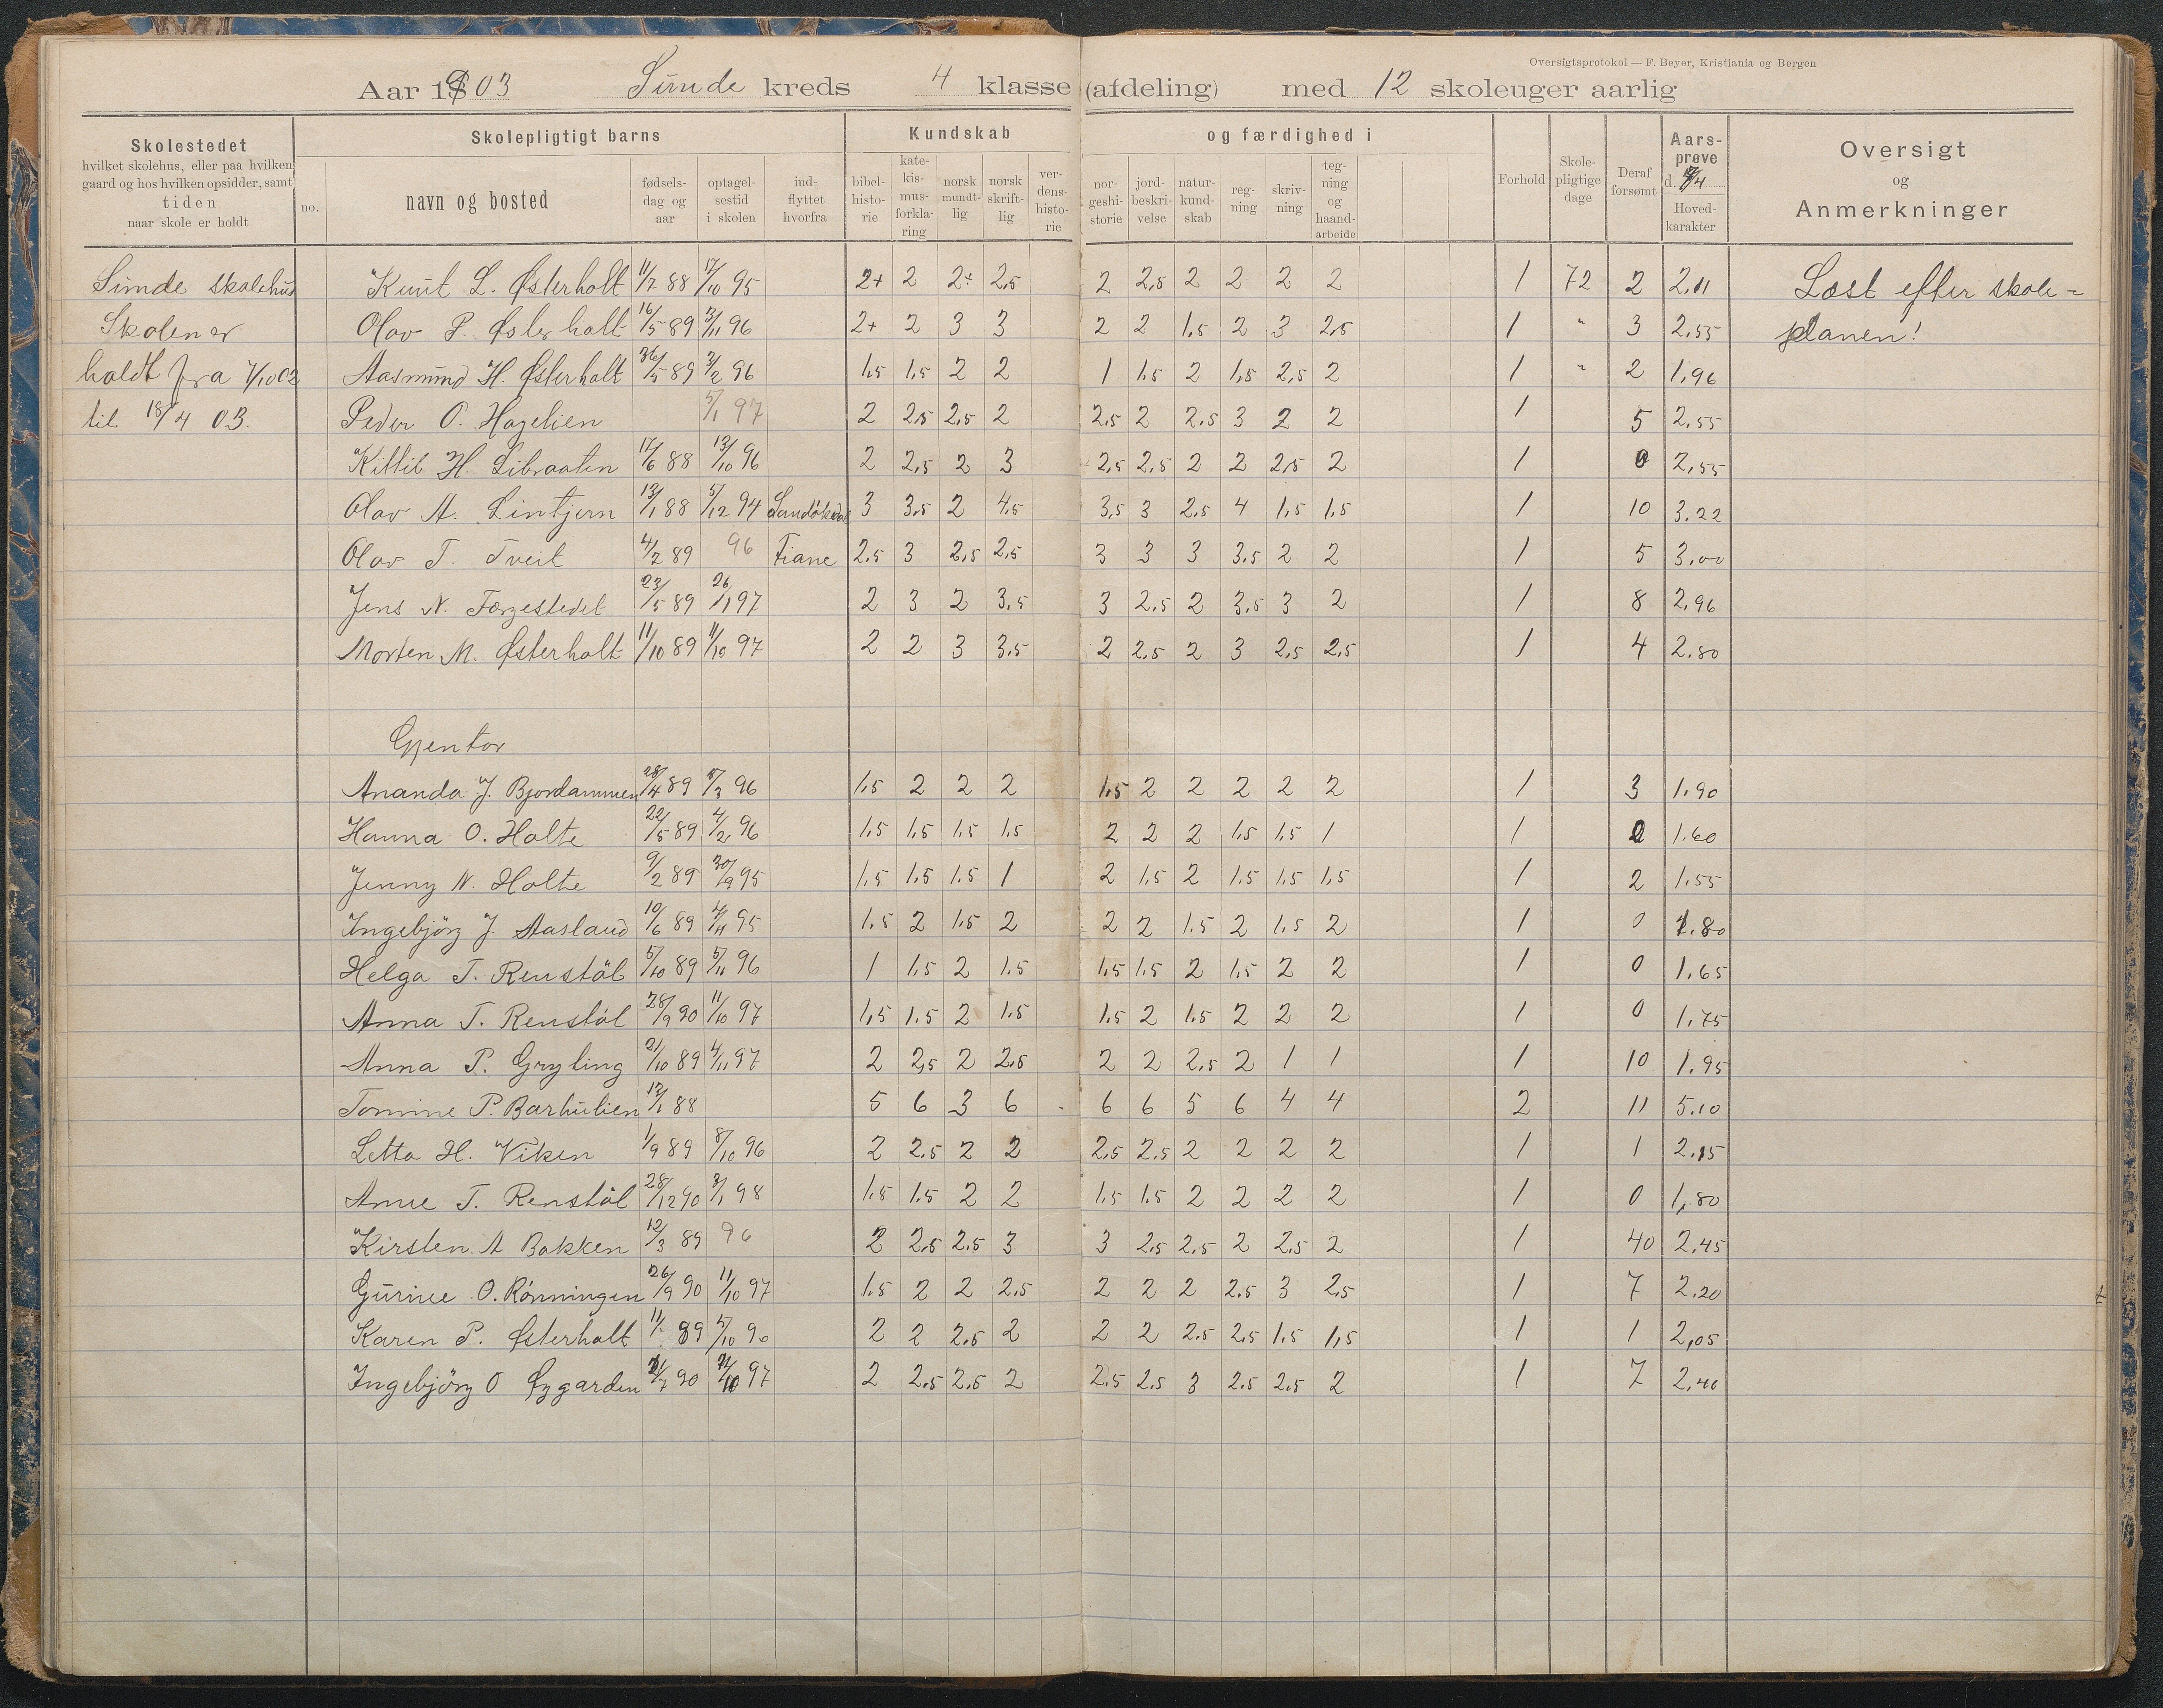 Oversigtsprotokol — F. Beyer, Kristiania og Bergen
Aar 1903 Sunde kreds 4 klasse (afdeling) med 12 skoleuger aarlig
Skolestedet
hvilket skolehus, eller paa hvilken
gaard og hos hvilken opsidder, samt
tiden
naar skole er holdt
Skolepligtigt barns
no. navn og bosted
fødsels-
dag og
aar
optagel-
sestid
i skolen
ind-
flyttet
hvorfra
Kundskab og færdighed i
bibel-
histo-
rie
kate-
kis-
mus-
forkla-
ring
norsk
mundt-
lig
norsk
skrift-
lig
ver-
dens-
histo-
rie
nor-
geshi-
storie
jord-
beskri-
velse
natur-
kund-
skab
reg-
ning
skriv-
ning
teg-
ning
og
haand-
arbeide
Forhold
Skole-
pligtige
dage
Deraf
forsømt
Aars-
prøve
d.
Hoved-
karakter
Oversigt
og
Anmerkninger
Sunde skolehus
Skolen er
holdt fra 7/10 02
til 18/4 03.
Knut L. Østerholt 11/7 88 17/10 95 2+ 2 2÷ 2,5 2 2,5 2 2 2 2 1 72 2 2,11 Læst efter skole-
Olav P. Østerholt 16/5 89 3/11 96 2+ 2 3 3 2 2 1,5 2 3 2,5 1 " 3 2,55 planen!
Aasmund H. Østerholt 5 89 3/2 96 1,5 1,5 2 2 1 1,5 2 1,5 2,5 2 1 " 2 1,96
Peder O. Hagelien 5/1 97 2 2,5 2,5 2 2,5 2 2,5 3 2 2 1 5 2,55
Kittil H. Libraaten 17/6 88 13/10 96 2 2,5 2 3 2,5 2,5 2 2 2,5 2 1 0 2,55
Olav A. Lintjern 13/1 88 5/12 94 3 3,5 2 4,5 3,5 3 2,5 4 1,5 1,5 1 10 3.22
Olav T. Tveit 4/2 89 96 Fiane 2,5 3 2,5 2,5 3 3 3 3,5 2 2 1 5 3,00
Jens N. Førgestedet 23/5 89 26/1 97 2 3 2 3,5 3 2,5 2 3,5 3 2 1 8 2,96
Morten M. Østerholt 11/10 89 11/10 97 2 2 3 3,5 2 2,5 2 3 2,5 2,5 1 4 2.80
Gjentor
Ananda J. Bjordammen 28/4 89 3 96 1,5 2 2 2 1,5 2 2 2 2 2 1 3 1.90
Hanna O. Holte 22/5 89 4/2 96 1,5 1,5 1,5 1,5 2 2 2 1,5 1,5 1 1 1.60
Jenny N. Holte 9/2 89 30/9 95 1,5 1,5 1.5 1 2 1,5 2 1,5 1,5 1,5 1 2 1.55
Ingebjörg J. Aasland 10/6 89 4/11 95 1,5 2 1,5 2 2 2 1,5 2 1,5 2 1 0 1.80
Helga T. Renstöl 5/10 89 5/11 96 1 1,5 2 1,5 1,5 1,5 2 1,5 2 2 1 0 1,65
Anna T. Renstöl 28/9 90 11/10 97 1,5 1.5 2 1.5 1.5 2 1.5 2 2 2 1 0 1,75
Anna P. Gryting 21/10 89 4/11 97 2 2,5 2 2,5 2 2 2,5 2 1 1 1 10 1.95
Tomine P. Barhulien 12/1 88 5 6 3 6 6 6 5 6 4 4 2 11 5.10
Letta H. Viken 1/9 89 8/10 96 2 2.5 2 2 2,5 2.5 2 2 2 2 1 1 2.15
Anne T. Renstöl 28/12 90 3/1 98 1.5 1.5 2 2 1.5 1.5 2 2 2 2 1 0 1,80
Kirsten A Bakken 12/3 89 96 2 2,5 2,5 3 3 2,5 2,5 2 2,5 2 1 40 2,45
Gurine O. Rönningen 26/9 90 11/10 97 1.5 2 2 2,5 2 2 2 2.5 3 2,5 1 7 2.20
Karen P. Østerholt 11/ 89 5/10 96 2 2 2.5 2 2 2 2.5 2.5 1.5 1,5 1 1 2,05
Ingebjörg O Øygarden 7 90 10 97 2 2,5 2,5 2 2,5 2,5 3 2,5 2,5 2 1 7 2,40